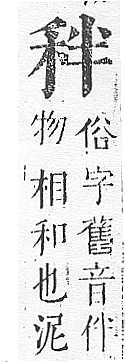 秚
俗字舊音伴
物相和也泥